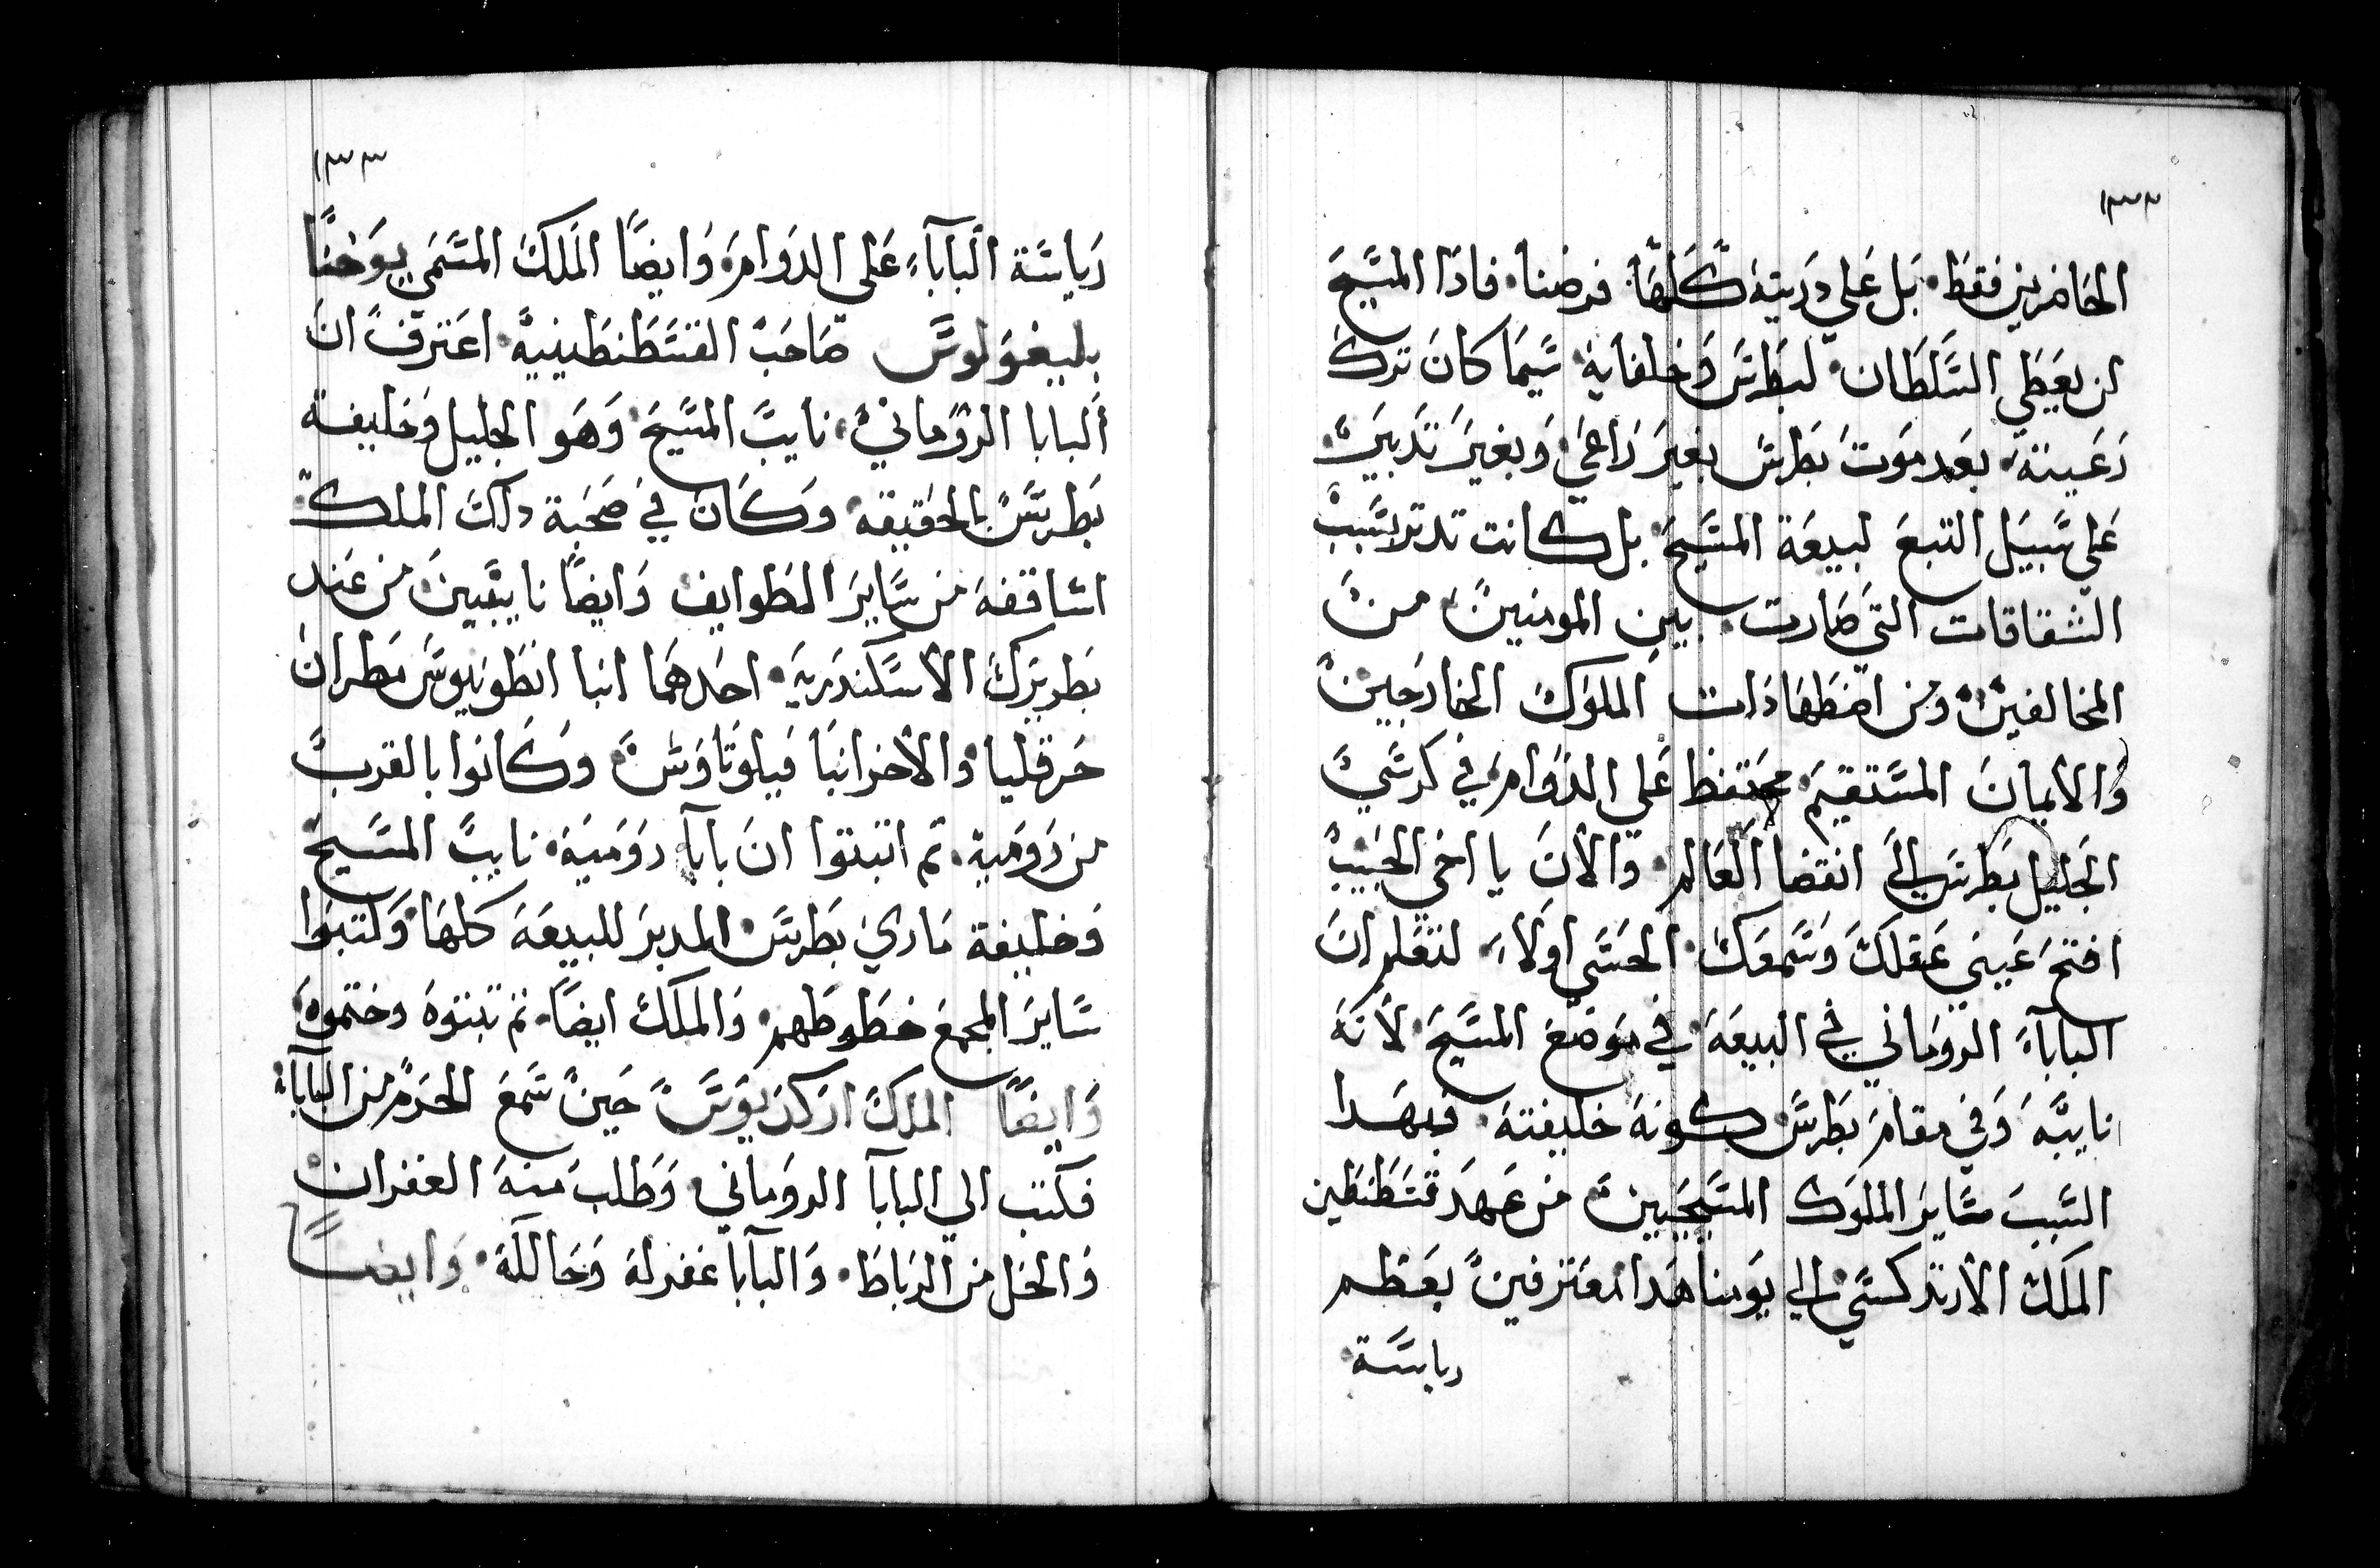 ١٣٣
الحاضرين فقط بل علي دريته كلها فرضنا فادا المسيح
لن يعطي السلطان لبطرس وخلفايه سيما كان ترك
رعيته بعد موت بطرس بغير راعي وبغير تدبير
علي سبيل التبع لبيعة المسيح بل كانت تدتر بسبب
الشقاقات التي صارت بين المومنين من
المخالفين ومن اضطهادات الملوك الخارجين
والايمان المستقيم محتفظ علي الدوام في كرسي
الجليل بطرس الي انقضا العالم والان يا اخي الحبيب
افتح عيني عقلك وسمعك الحسي اولا لتعلم ان
الباباء الروماني في البيعة في موضع المسيح لانه
نايبه وفي مقام بطرس كونه خليفته فبهدا
السبب سايرالملوك المسيحيين من عهد قسطنطين
الملك الارتدكسي الي يومنا هدا معترفين بعظم
رياسة
١٣٣
رياسة الباباء علي الدوام وايضا الملك المسمي يوحنا
بليغولوس صاحب القسطنطينية اعترف ان
البابا الروماني نايب المسيح وهو الجليل وخليفة
بطرس بالحقيقه وكان في صحبة داك الملك
اساقفه من ساير الطوايف وايضا نايبين من عند
بطريرك الاسكندرية احدهما انبا انطونيوس مطران
حرقليا والاخر انبا فيلوتاوس وكانوا بالقرب
من رومية تم اتبتوا ان بابا رومية نايب المسيح
وخليفة ماري بطرس المدبر للبيعة كلها وكتبوا
ساير المجمع خطوطهم والملك ايضا تم تبتوه وختموه
وايضا الملك اركديوس حين سمع الحرم من الباباء
فكتب الي البابا الروماني وطلب منه الغفران
والحل من الرباط والبابا غفر له وحالله وايضا